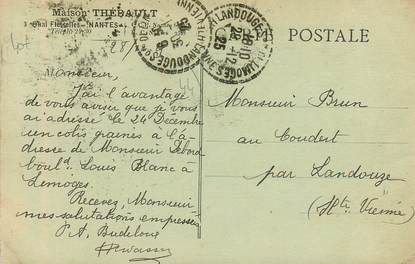 Maison THÉBAULT
Quai Flesselles - NANTES
Téléphone
28/
CARTE POSTALE
LALANDOUGE
28-12
25
LIMOGES
Monsieur,
J'ai l'avantage
de vous aviser que je vous
ai adressé le 24 Décembre
un colis graines à l'a-
dresse de Monsieur Debord
boul<sup>d</sup>. Louis Blanc à
Limoges.
Recevez, Monsieur
mes salutations empressées
P.A. Budeloue
Monsieur Brun
au Coudert
par Landouze
(Hte Vienne)